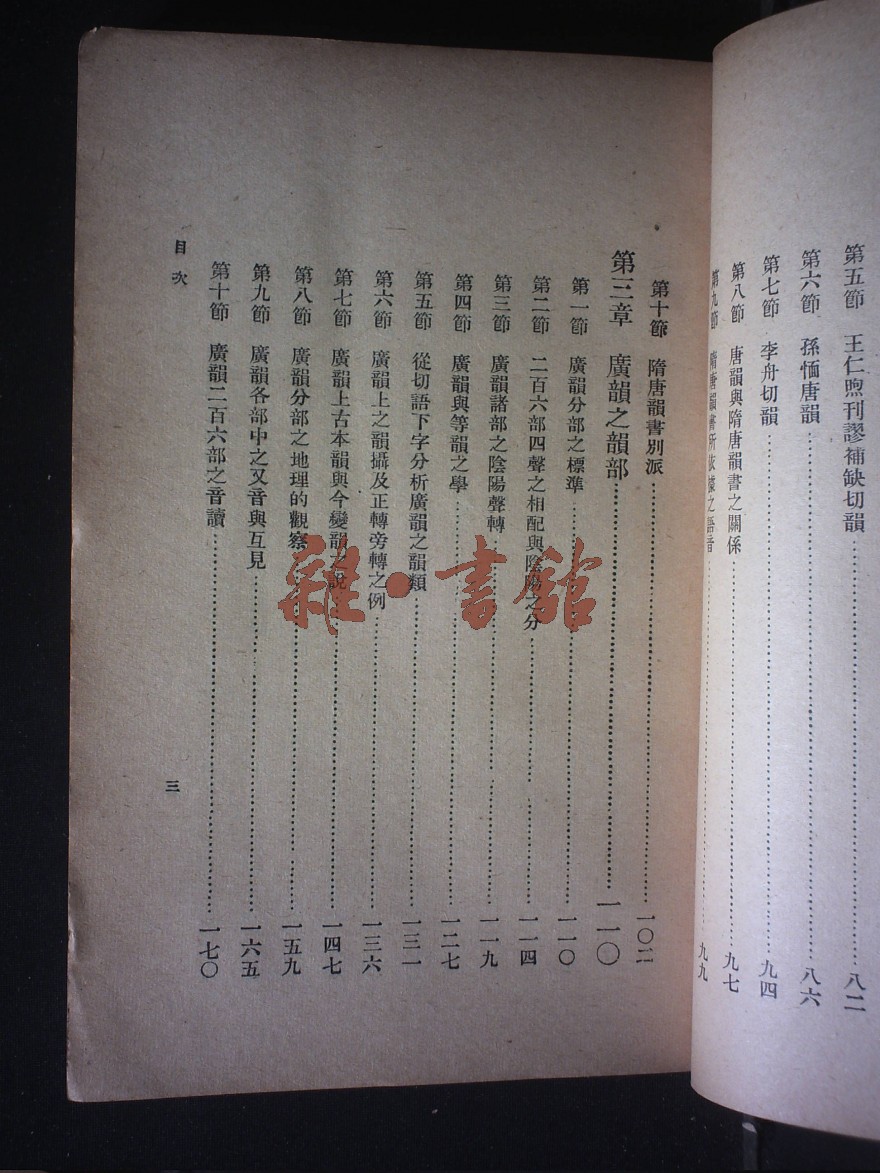 第五節　王仁煦刊謬補缺切韻……八二
第六節　孫愐唐韻……八六
第七節　李舟切韻……九四
第八節　唐韻與隋唐韻書之關係……九七
第九節　隋唐韻書所依據之語音……九九
第十節　隋唐韻書別派……一〇二
第三章　廣韻之韻部……一一〇
第一節　廣韻分部之標準……一一〇
第二節　二百六部四聲之相配與陰陽之分……一一四
第三節　廣韻諸部之陰陽聲轉……一一九
第四節　廣韻與等韻之學……一二七
第五節　從切語下字分析廣韻之韻類……一三一
第六節　廣韻上之韻攝及正轉旁轉之例……一三六
第七節　廣韻上古本韻與今變韻之說……一四七
第八節　廣韻分部之地理的觀察……一五九
第九節　廣韻各部中之又音與互見……一六五
第十節　廣韻二百六部之音讀……一七〇
目次
三
雜·書館